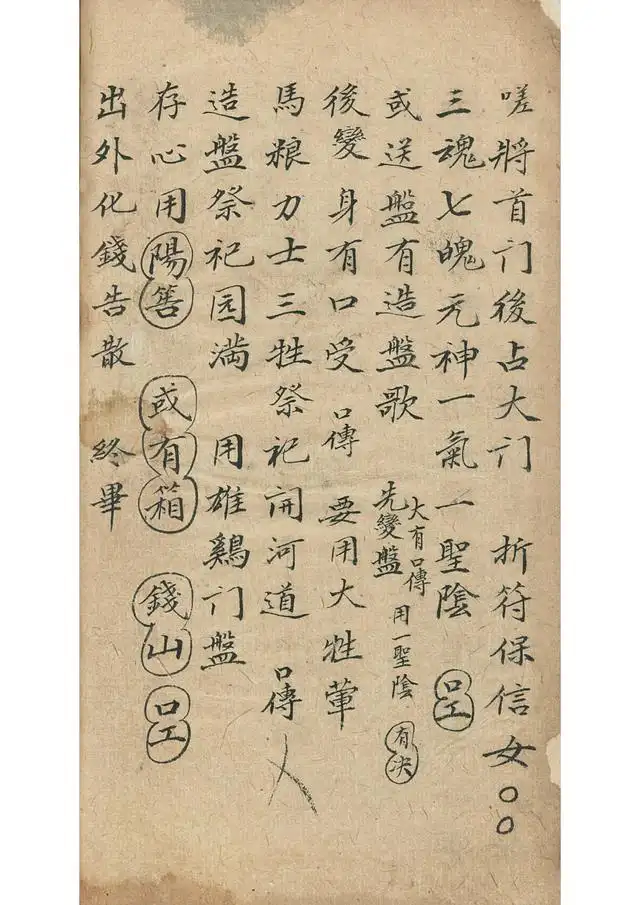 嗟將首门後占大门 折符保信女○○
三魂七魄元神一氣一聖陰 口工
或送盤有造盤歌 大有口傳 先變盤 用一聖陰 有决
後變身有口受 口傳 要用大牲葷
馬粮力士三牲祭祀開河道 口傳
造盤祭祀园满 用雄鷄门盤
存心用陽筶 或有箱 錢山 口工
出外化錢告散 終畢